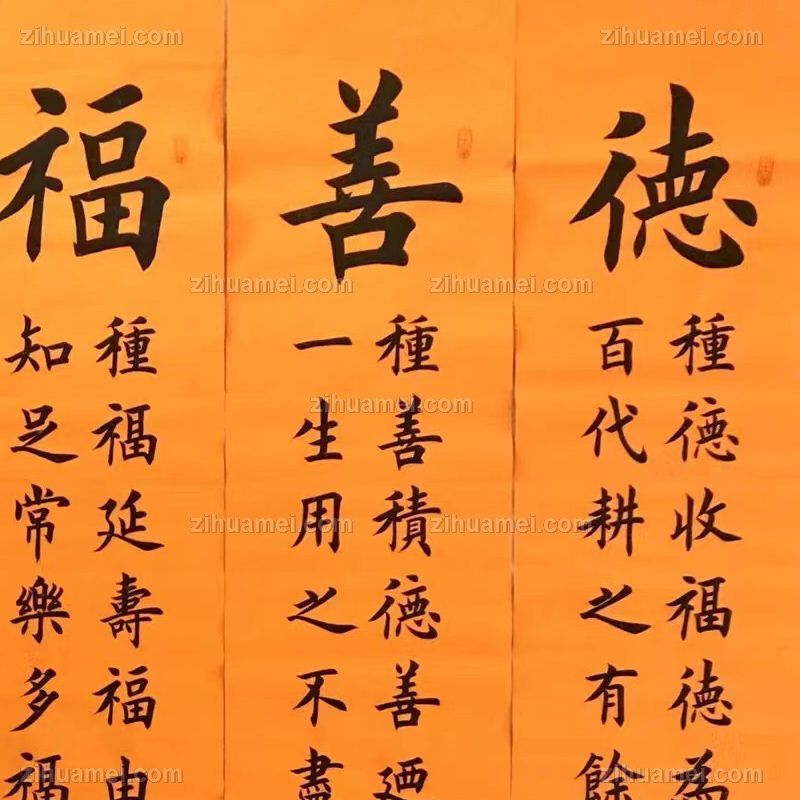 德
種德收福德為
百代耕之有餘
善
種善積德善迺
一生用之不盡
福
種福延壽福由
知足常樂多福
zihuamei.com
zihuamei.com
zihuamei.com
zihuamei.com
zihuamei.com
zihuamei.com
zihuamei.com
zihuamei.com
zihuamei.com
zihuamei.com
zihuamei.com
zihuamei.com